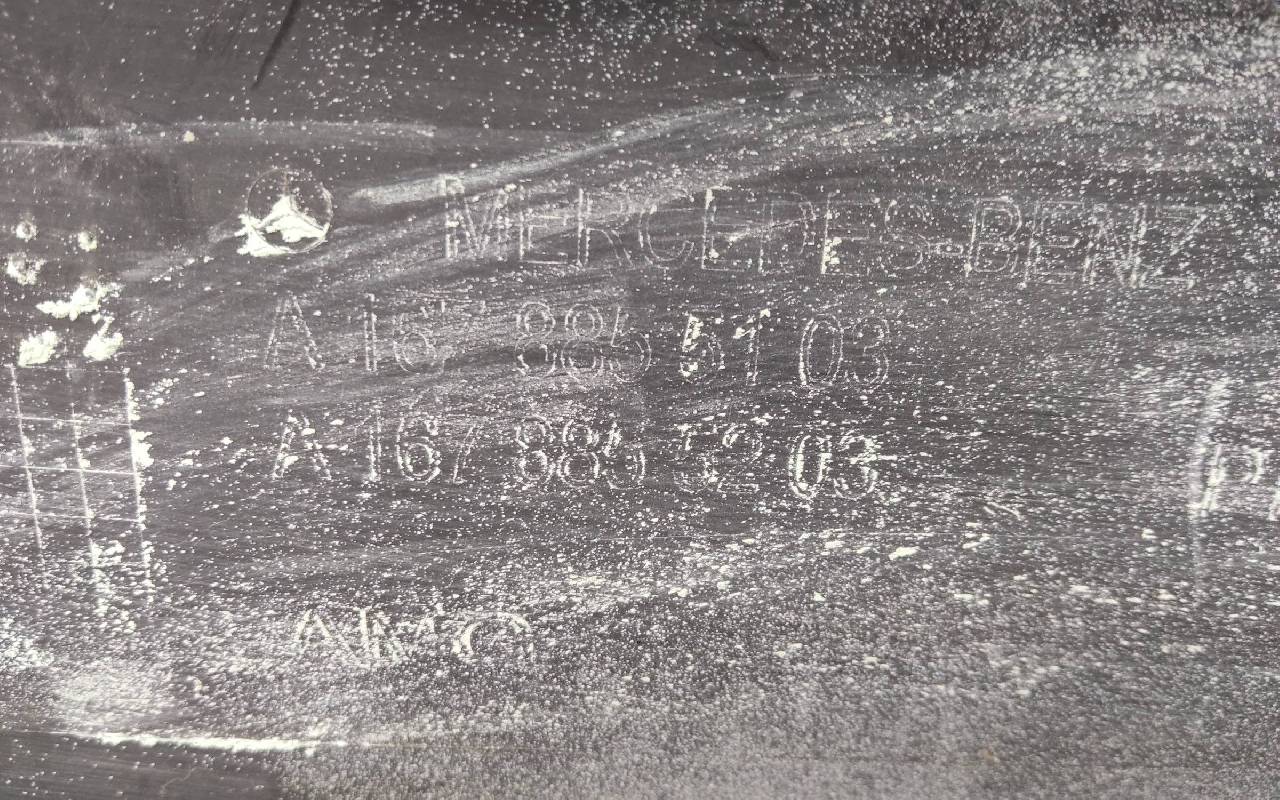 MERCEDES-BENZ
A 167 885 51 03
A 167 885 52 03
AMG